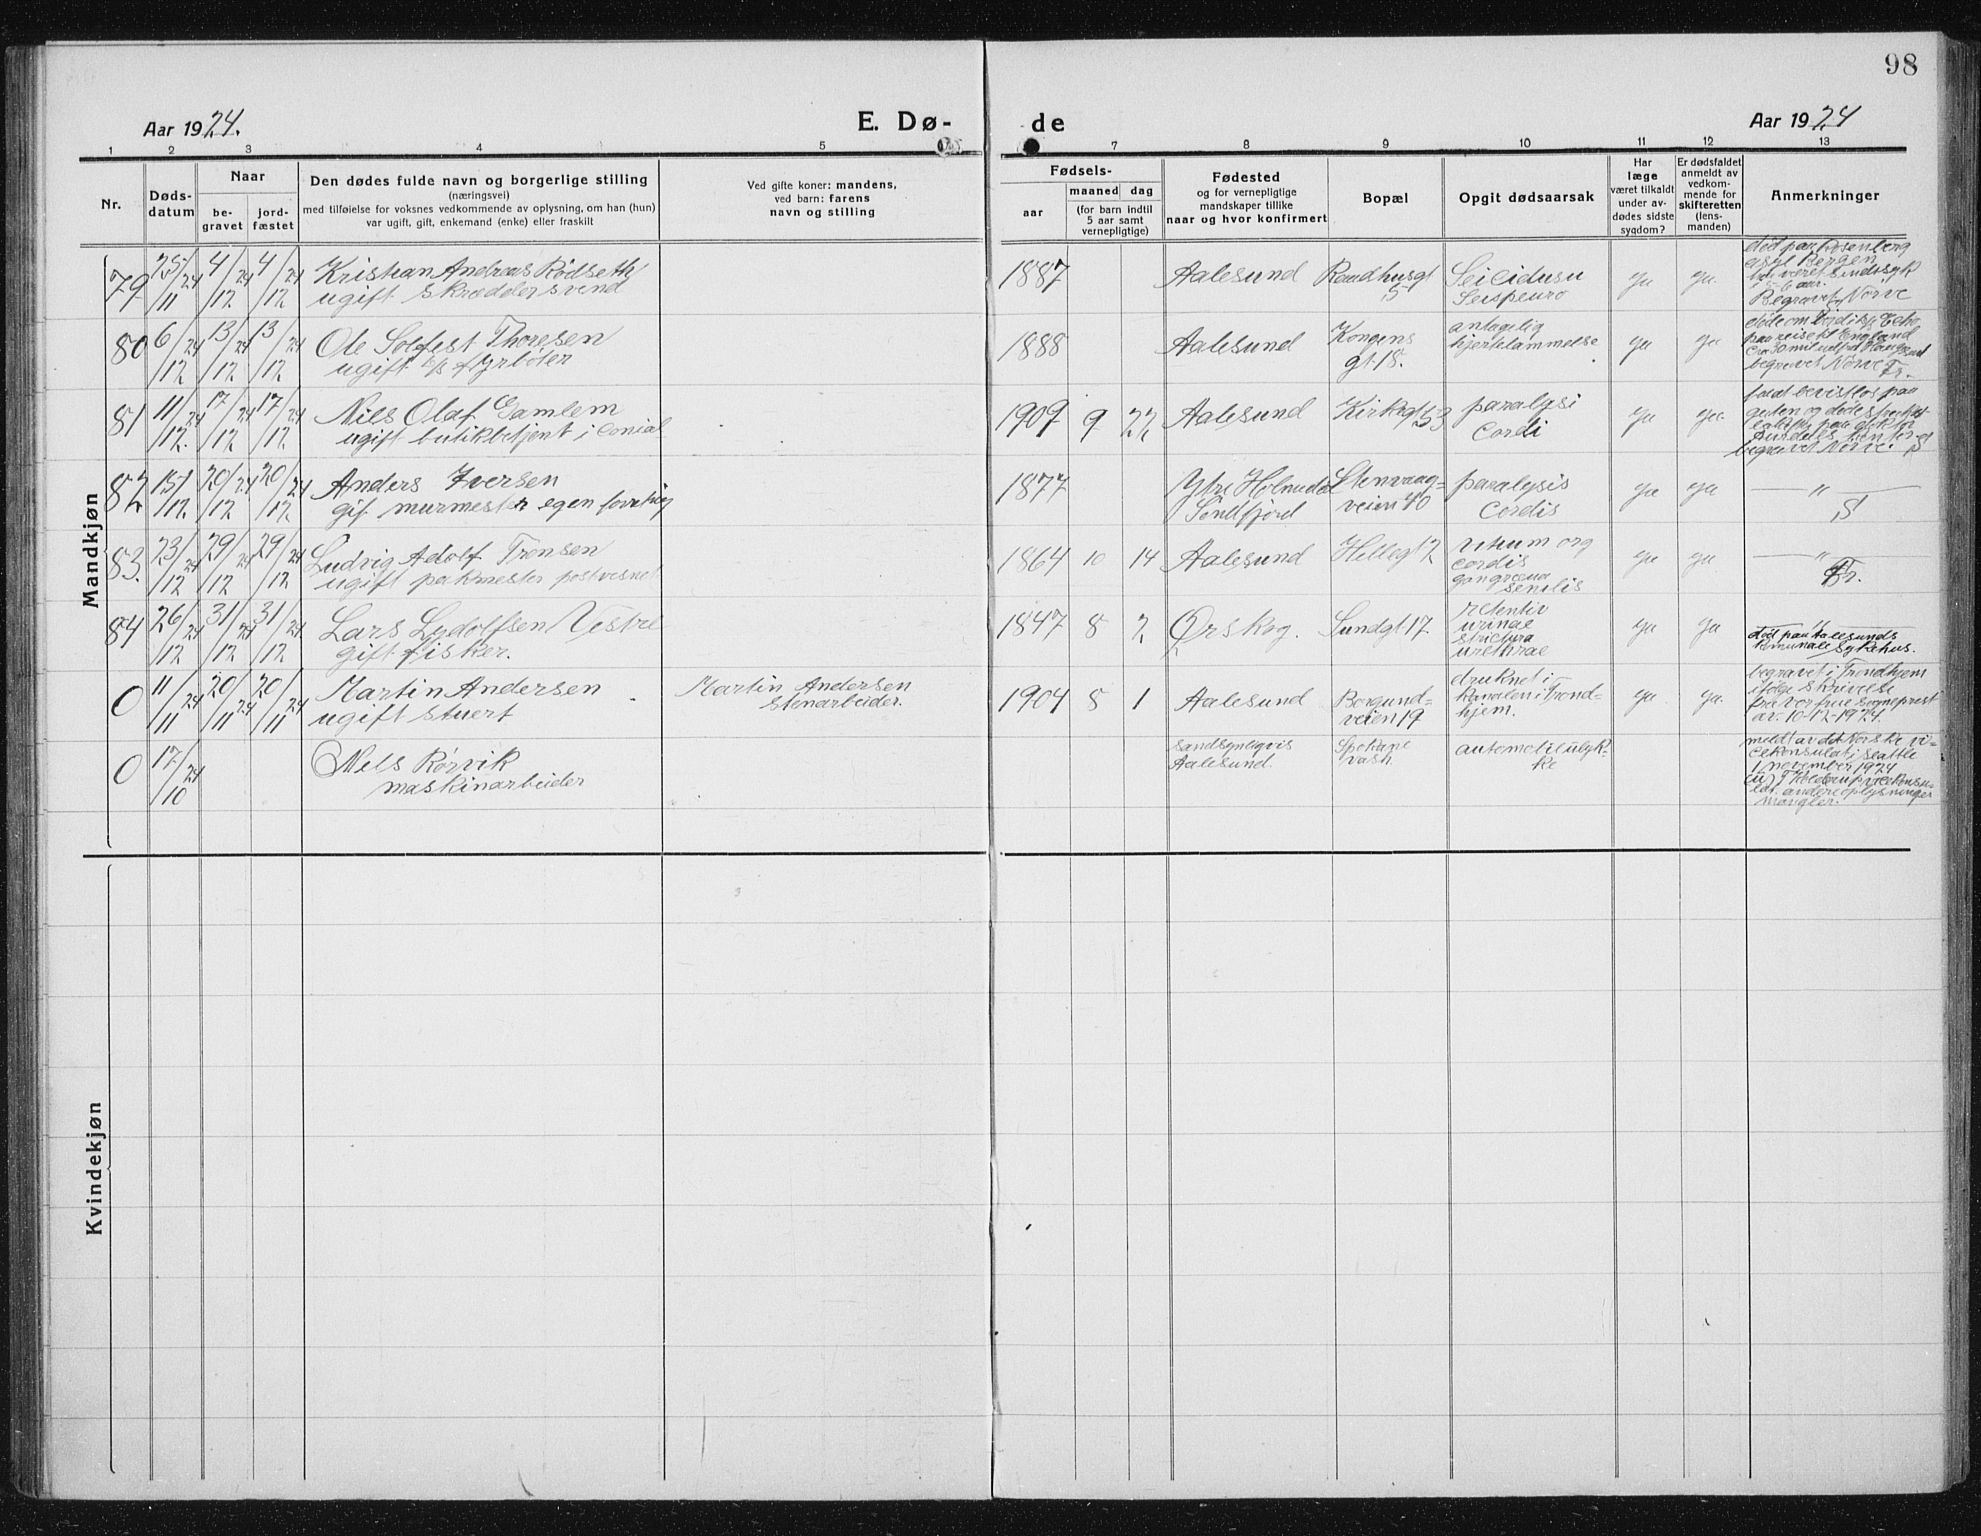 98
Aar 1924.
E. Dø-
de
Aar 1924
1 2 3 4 5 7 8 9 10 11 12 13
Nr.
Døds-
datum
Naar
be-
gravet
jord-
fæstet
Den dødes fulde navn og borgerlige stilling
(næringsvei)
med tilføielse for voksnes vedkommende av oplysning, om han (hun)
var ugift, gift, enkemand (enke) eller fraskilt
Ved gifte koner: mandens,
ved barn: farens
navn og stilling
Fødsels-
aar
maaned
dag
(for barn indtil
5 aar samt
vernepligtige)
Fødested
og for vernepligtige
mandskaper tillike
naar og hvor konfirmert
Bopæl
Opgit dødsaarsak
Har
læge
været tilkaldt
under av-
dødes sidste
sygdom?
Er dødsfaldet
anmeldt av
vedkom-
mende for
skifteretten
(lens-
manden)
Anmerkninger
Mandkjøn
79 25/11 24 4/12 24 4/12 24
Kristian Andreas Rødseth
ugift skræddersvend
1887
Aalesund
Raadhusgt
5
ya ya.
død paa Rosenberg
asyl Bergen
har været sindssyk
5-6 aar.
Begravet Nørve
80 6/12 24 13/12 24 13/12 24
Ole Solfest Thoresen
ugift fyrbøter
1888
Aalesund
Kongens
gt. 18.
antagelig
hjertelammelse
ya ya
begravet Nørve
Fr.
81 11/12 24 17/12 24 17/12 24
Nils Olaf Gamlem
ugift butikbetjent i
1909 9 22
Aalesund
Kirkegt 53
paralysi
Cordi
ya ya
begravet Nørve. S
82 15/12 20/12 24 20/12 24
Anders Iversen
gif. murmester egen
1877
Ytre Holmedal
Søndfjord
Stenvaag-
veien 40
paralysis
Cordis
ya ya
— " —
S
83. 23/12 24 29/12 24 29/12 24
Ludvig Adolf Tronsen
ugift pakmester postvesnet
1864 10 14
Aalesund
Hellegt 2
vitium org
cordis
gangræna
senilis
ya ya
— " —
Fr.
84 26/12 24 31/12 24 31/12 24
Lars Lydolfsen Vestre
gift fisker.
1847 8 2
Ørskog.
Sundgt 17
retentio
urinae
strictura
urethrae
ya ya
død paa Aalesunds
Komunale Sykehus.
0 11/11 24 20/11 24 20/11 24
Martin Andersen
ugift stuert
Martin Andersen
stenarbeider.
1904 8 1
Aalesund
Borgund-
veien 19
druknet i
Kanalen i Trond-
hjem.
ya ya.
begravet i Trondhjem
ifølge skrivelse
fra vor frue sogneprest
av 10-12-1924.
0 17/10 24
Nils Rørvik
maskinarbeider
sandsynligvis
Aalesund.
Spokane
Wash
automobilulyk-
ke
meldt av det Norske vi-
cekonsulat i Seattle
1 november 1924
andre oplysninger
mangler.
Kvindekjøn